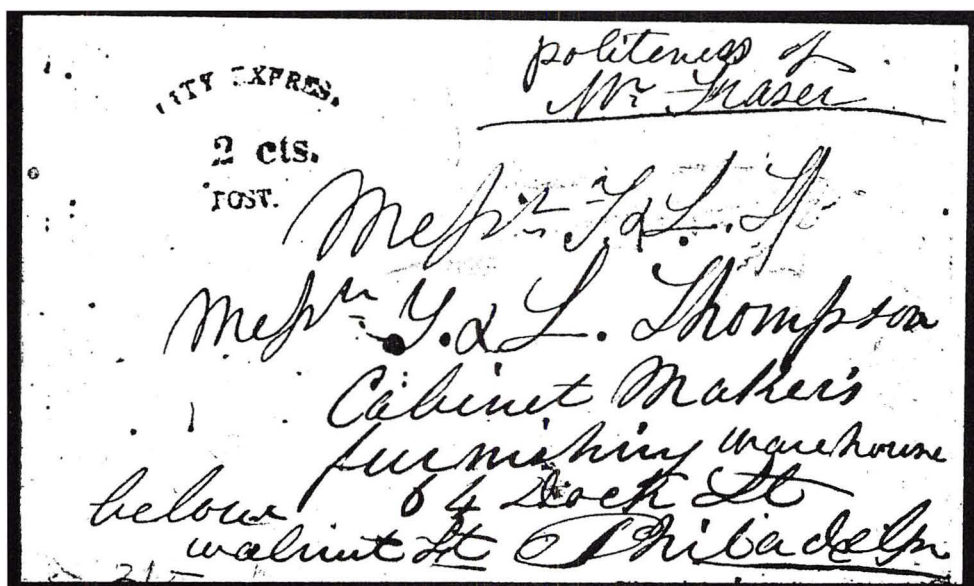 CITY EXPRES.
2 cts.
POST.
politeness of
Mr. Fraser
Messrs. T. & L. Th
Messrs T. & L. Thompson
Cabinet Maker's
furnishing warehouse
64 Dock St
below
walnut St Philadelpa
21